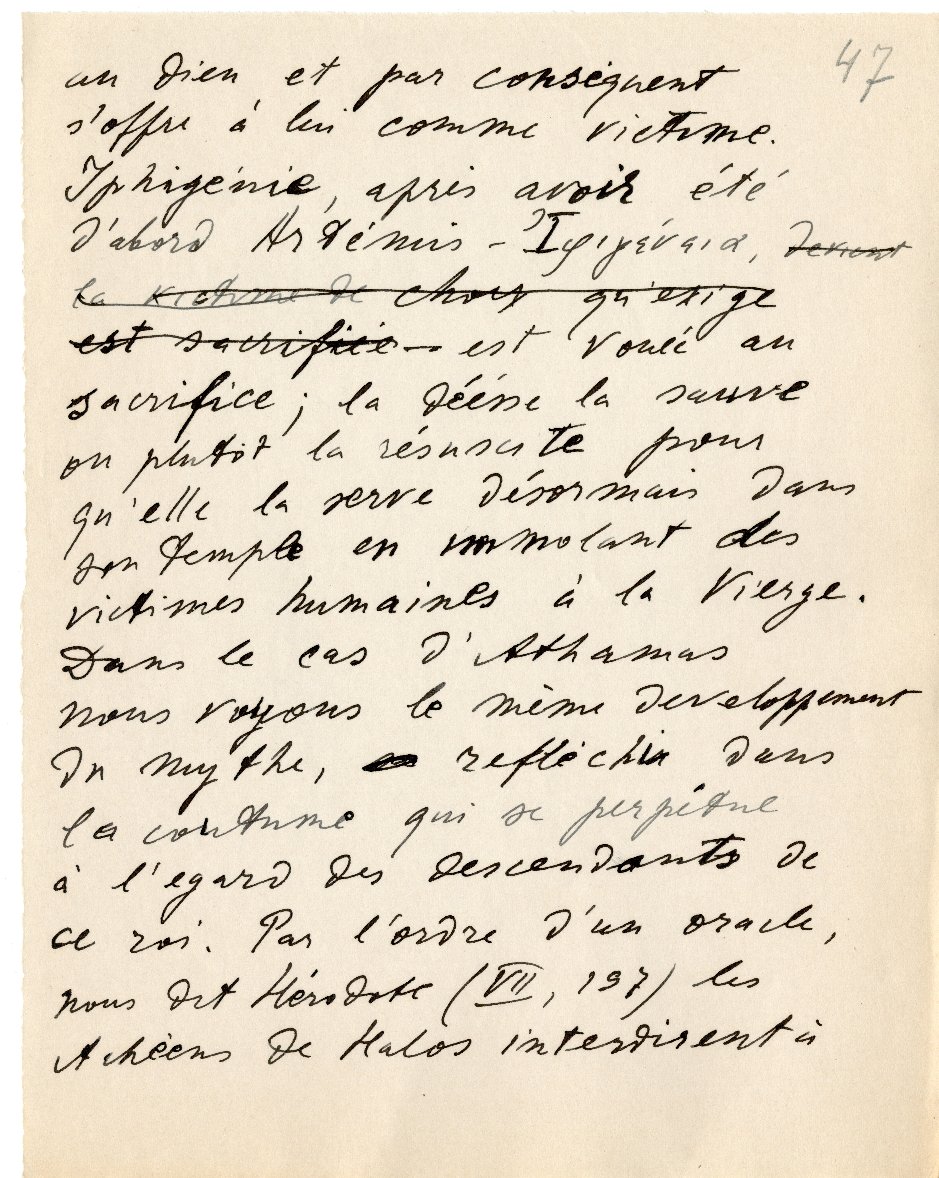 47
au dieu et par conséquent
s'offre à lui comme victime.
Iphigénie, après avoir été
d'abord Artémis - Ἰφιγένεια, devient
la victime de choix qu'exige
est sacrifiée — est vouée au
sacrifice; la déesse la sauve
ou plutôt la résuscite pour
qu'elle la serve désormais dans
son temple en immolant des
victimes humaines à la Vierge.
Dans le cas d'Athamas
nous voyons le même developpement
du mythe, refléchi dans
la coutume qui se perpétue
à l'egard des descendants de
ce roi. Par l'ordre d'un oracle,
nous dit Hérodote (VII, 197) les
Achéens de Halos interdirent à